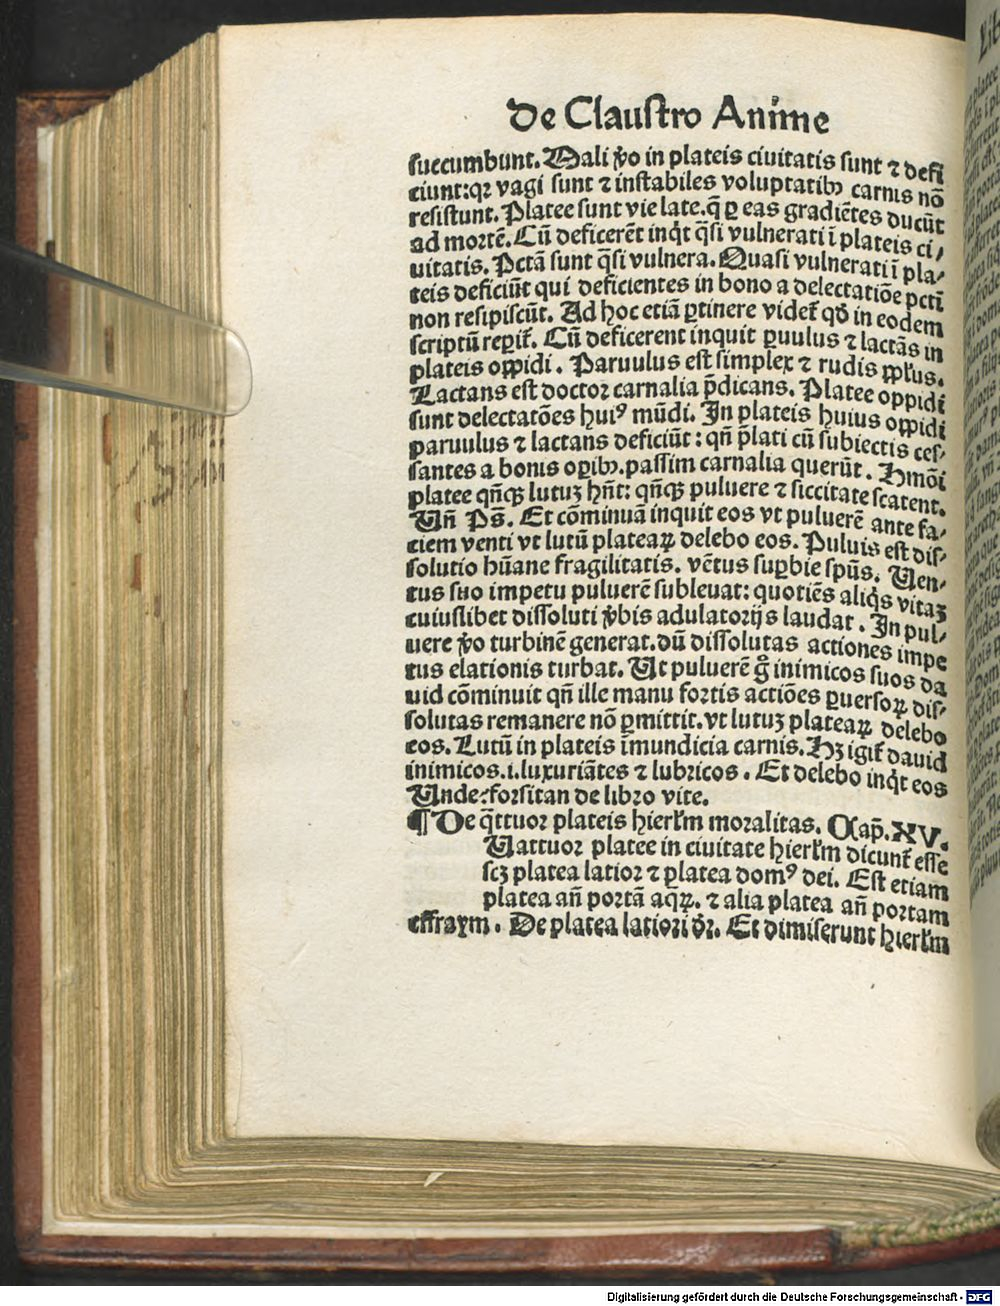 De Claustro Anime
succumbunt. Mali ꝟo in plateis ciuitatis sunt ⁊ defi
ciunt: qꝛ vagi sunt ⁊ instabiles voluptatibꝰ carnis nō
resistunt. Platee sunt vie late. q̄ ꝑ eas gradiētes ducūt
ad mortē. Cū deficerēt inqͥt q̄si vulnerati ī plateis ci⸗
uitatis. Pctā sunt q̄si vulnera. Quasi vulnerati ī pla⸗
teis deficiūt qui deficientes in bono a delectatiōe pctī
non resipiscūt. Ad hoc etiā ꝑtinere videt᷑ qd̓ in eodem
scriptū reꝑit᷑. Cū deficerent inquit ꝑuulus ⁊ lactās in
plateis oppidi. Paruulus est simplex ⁊ rudis ppl̓us.
Lactans est doctor carnalia p̄dicans. Platee oppidi
sunt delectatōes huiꝰ mūdi. In plateis huius oppidi
paruulus ⁊ lactans deficiūt: qn̄ p̄lati cū subiectis ces⸗
santes a bonis oꝑibꝫ. passim carnalia querūt. Hmōi
platee qn̄qꝫ lutuꝫ hn̄t: qn̄qꝫ puluere ⁊ siccitate scatent.
Un̄ Ps̄. Et cōminuā inquit eos vt puluerē ante fa⸗
ciem venti vt lutū plateaꝝ delebo eos. Puluis est dis⸗
solutio hūane fragilitatis. vētus suꝑbie spūs. Uen⸗
tus suo impetu puluerē subleuat: quotiēs aliqͥs vitaꝫ
cuiuslibet dissoluti ꝟbis adulatorijs laudat. In pul⸗
uere ꝟo turbinē generat. dū dissolutas actiones impe
tus elationis turbat. Ut puluerē gͦ inimicos suos da
uid cōminuit qn̄ ille manu fortis actiōes ꝑuersoꝝ dis⸗
solutas remanere nō ꝑmittit. vt lutuꝫ plateaꝝ delebo
eos. Lutū in plateis īmundicia carnis. Hꝫ igit᷑ dauid
inimicos .i. luxuriātes ⁊ lubricos. Et delebo inqͥt eos
Unde: forsitan de libro vite.
¶ De q̄ttuor plateis hierl̓m moralitas. Cap̄. XV.
Uattuor platee in ciuitate hierl̓m dicunt᷑ esse
scꝫ platea latior ⁊ platea domꝰ dei. Est etiam
platea an̄ portā aqꝝ. ⁊ alia platea an̄ portam
effraym. De platea latiori dr̄. Et dimiserunt hierl̓m
Digitalisierung gefördert durch die Deutsche Forschungsgemeinschaft - DFG